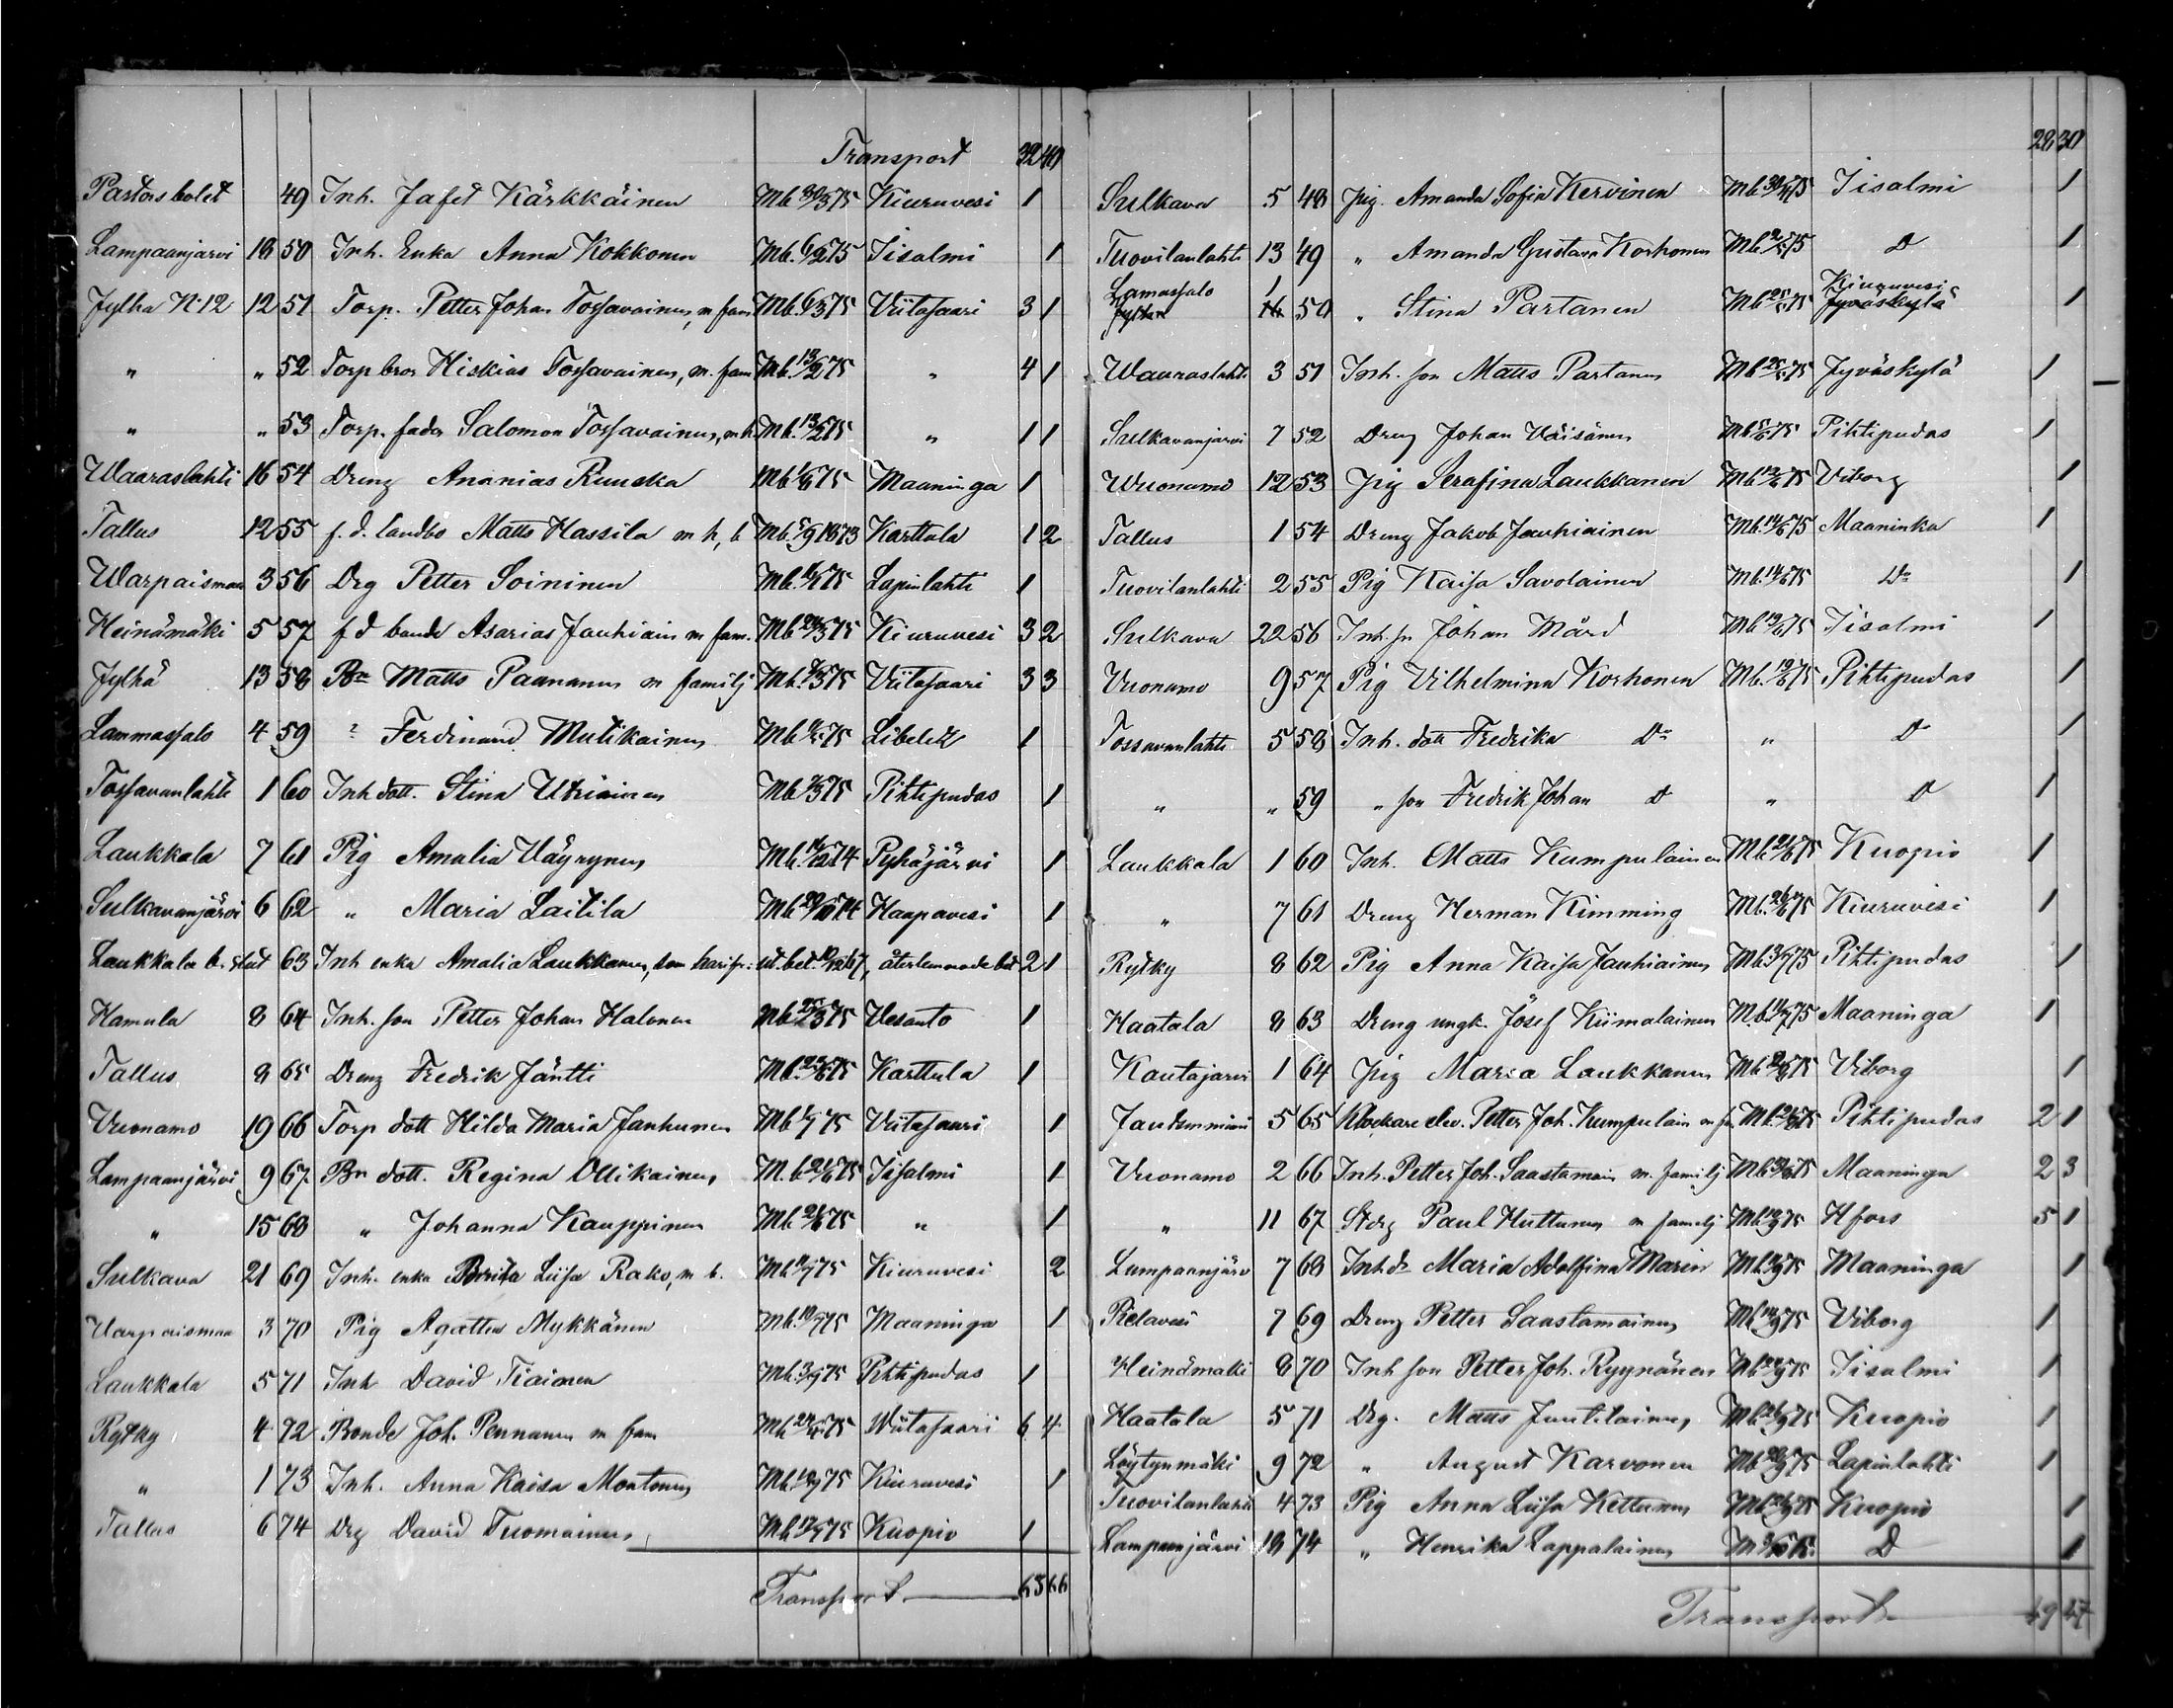 Transport 32 40
Pastors bolet 49 Inh. Jafet Kärkkäinen Mb. 30/3 75 Kiuruvesi 1
Lampaanjärvi 18 50 Inh. Enka Anna Kokkonen Mb. 6/2 75 Iisalmi 1
Jylhä N:12 12 51 Torp. Petter Johan Tossavainen, m fam Mb. 6/3 75 Viitasaari 3 1
" " 52 Torp bror Hiskias Tossavainen, m. fam Mb. 13/2 75 " 4 1
" " 53 Torp. fader Salomon Tossavainen, m h. Mb. 13/2 75 " 1 1
Waaraslahti 16 54 Dreng Ananias Ruuska Mb 1/6 75 Maaninga 1
Tallus 12 55 f. d. landbo Matts Hassila m h, b Mb. 5/9 1873 Karttula 1 2
Warpaismaa 3 56 Drg Petter Soininen Mb. 75 Lapinlahti 1
Heinämäki 5 57 f d bonde Asarias Jauhiain m fam. Mb 24/3 75 Kiuruvesi 3 2
Jylhä 13 58 Bn Matts Paananen m familj Mb. 75 Viitasaari 3 3
Lammassalo 4 59 " Ferdinand Mutikainen Mb 75 Libelitz 1
Tossavanlahti 1 60 Inh dott. Stina Utriainen Mb 75 Pihtipudas 1
Laukkala 7 61 Pig Amalia Väyrynen Mb. 14/12 74 Pyhäjärvi 1
Sulkavanjärvi 6 62 " Maria Laitila Mb 29/10 74 Haapavesi 1
Laukkala b. slut 63 Inh enka Amalia Laukkanen, som har fr. ut. bet. 67, återlemnade bet 2 1
Hamula 8 64 Inh. son Petter Johan Halonen Mb. 25/3 75 Vesanto 1
Tallus 8 65 Dreng Fredrik Jäntti Mb. 23/6 75 Karttula 1
Vuonamo 19 66 Torp dott Hilda Maria Janhunen Mb 1/7 75 Viitasaari 1
Lampaanjärvi 9 67 Bn dott. Regina Ollikainen M. b 21/6 75 Iisalmi 1
" 15 68 " Johanna Kauppinen Mb 21/6 75 " 1
Sulkava 21 69 Inh. enka Brita Liisa Rako, m b. Mb 75 Kiuruvesi 2
Varpaismaa 3 70 Pig Agatha Mykkänen Mb. 10/7 75 Maaninga 1
Laukkala 5 71 Inh David Tiainen Mb. 3/7 75 Pihtipudas 1
Rytky 4 72 Bonde Joh. Pennanen m fam Mb 75 Wiitasaari 6 4
" 1 73 Inh. Anna Kaisa Moutonen Mb. 75 Kiuruvesi 1
Tallus 6 74 Drg David Tuomainen Mb 17/7 75 Kuopio 1
Transport 63 66
28 30
Sulkava 5 48 Pig. Amanda Sofia Kervinen Mb. 30/4 75 Iisalmi 1
Tuovilanlahti 13 49 " Amanda Gustava Korhonen Mb 2/5 75 D 1
Lamassalo 1 Kiuruvesi
Jylhä 16 50 " Stina Partanen Mb 25/5 75 Jyväskylä 1
Waaraslahti 3 51 Inh. son Matts Partanen Mb 25/5 75 Jyväskylä 1
Sulkavanjärvi 7 52 Dreng Johan Väisänen Mb 5/6 75 Pihtipudas 1
Wuonamo 12 53 Pig Serafina Laukkanen Mb 12/6 75 Viborg 1
Tallus 1 54 Dreng Jakob Jauhiainen Mb. 14/6 75 Maaninka 1
Tuovilanlahti 2 55 Pig Kaisa Savolainen Mb. 14/6 75 Do 1
Sulkava 22 56 Inh. sn Johan Mård Mb 13/6 75 Iisalmi 1
Vuonamo 9 57 Pig Vilhelmina Korhonen Mb. 19/6 75 Pihtipudas 1
Tossavanlahti 5 58 Inh. dott Fredrika Do " D 1
" " 59 " son Fredrik Johan D " D 1
Laukkala 1 60 Inh. Matts Kumpulainen Mb 21/6 75 Kuopio 1
" 7 61 Dreng Herman Kimming Mb. 26/6 75 Kiuruvesi 1
Rytky 8 62 Pig Anna Kaisa Jauhiainen Mb 3/7 75 Pihtipudas 1
Haatala 8 63 Dreng ungk. Josef Kiimalainen Mb. 11/7 75 Maaninga 1
Kautajärvi 1 64 Pig Maria Laukkanen Mb 75 Viborg 1
5 65 Klockare elev. Petter Joh. Kumpulain m fm Mb 75 Pihtipudas 2 1
Vuonamo 2 66 Inh. Petter Joh. Saastamoin m. familj Mb 75 Maaninga 2 3
" 11 67 St drg Paul Huttunen m familj Mb 75 Hfors 5 1
Lampaanjärv 7 68 Inh dr Maria Adolfina Marin Mb 75 Maaninga 1
Pielavesi 7 69 Dreng Petter Saastamoinen Mb 75 Viborg 1
Heinämäki 8 70 Inh son Petter Joh. Ryynänen Mb 75 Iisalmi 1
Haatala 5 71 Drg. Matts Juutilainen Mb 75 Kuopio 1
Löytynmäki 9 72 " August Karvonen Mb 75 Lapinlahti 1
Tuovilanlahti 4 73 Pig Anna Liisa Kettunen Mb 75 Kuopio 1
Lampaanjärvi 18 74 " Henrika Lappalainen Mb 75 D 1
Transport 49 47